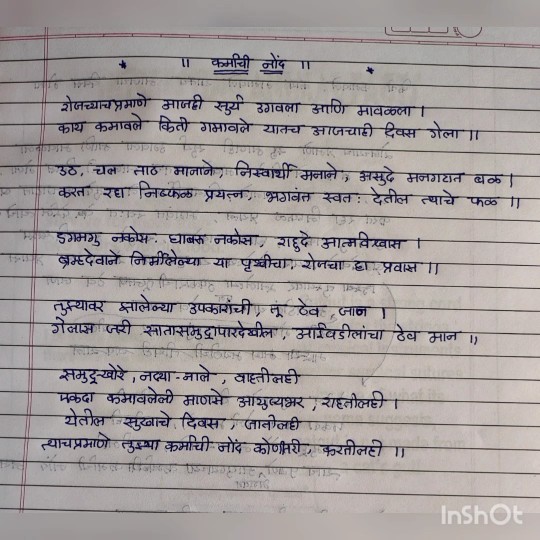 * ॥ कर्माची नोंद ॥ *
रोजच्याचप्रमाणे आजही सुर्य उगवला आणि मावळला ।
काय कमावले किती गमावले यातच आजचाही दिवस गेला ॥
उठ, चल ताठ मानाने, निस्वार्थी मनाने, असुदे मनगटात बळ ।
करत रहा निष्फळ प्रयत्न, भगवंत स्वतः देतील त्याचे फळ ॥
डगमगु नकोस घाबरु नकोस राहुदे आत्मविश्वास ।
ब्रम्हदेवाने निर्मीलेल्या या पृथ्वीचा, रोजचा हा प्रवास ॥
तुझ्यावर झालेल्या उपकारांची तू ठेव जान ।
गेलास जरी सातासमुद्रापारदेखील, आईवडीलांचा ठेव मान ॥
समुद्र-खोरे, नद्या-नाले, वाहतीलही
एकदा कमावलेली माणसे आयुष्यभर, राहतीलही ।
येतील सुखाचे दिवस, जातीलही
त्याचप्रमाणे तुझ्या कर्माची नोंद कोणीतरी, करतीलही ॥
InShOt